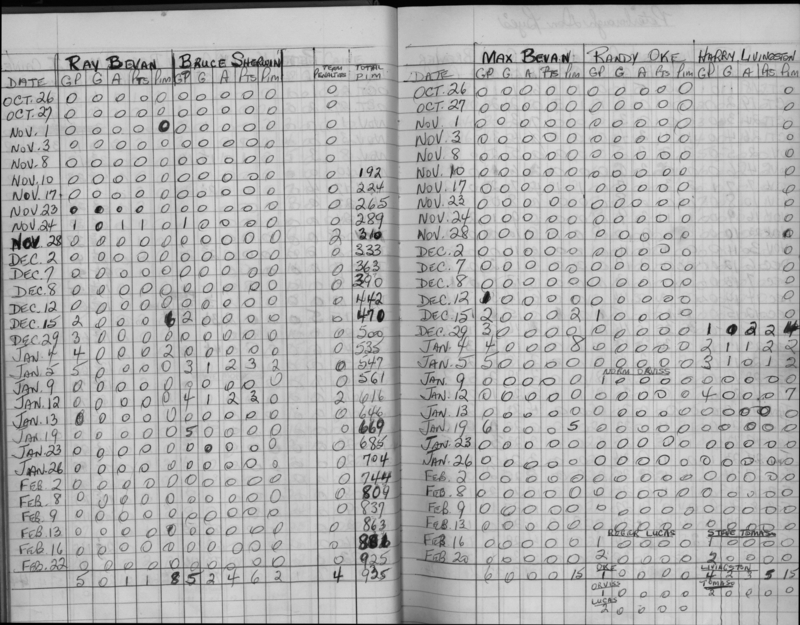 RAY BEVAN BRUCE SHERWIN TEAM PENALTIES TOTAL PIM
DATE GP G A PTS PIM GP G A PTS PIM
OCT. 26 0 0 0 0 0 0 0 0 0 0 0
OCT. 27 0 0 0 0 0 0 0 0 0 0 0
NOV. 1 0 0 0 0 0 0 0 0 0 0 0
NOV. 3 0 0 0 0 0 0 0 0 0 0 0
NOV. 8 0 0 0 0 0 0 0 0 0 0 0
NOV. 10 0 0 0 0 0 0 0 0 0 0 0 192
NOV. 17 0 0 0 0 0 0 0 0 0 0 0 224
NOV 23 0 0 0 0 0 0 0 0 0 0 0 265
NOV. 24 1 0 1 1 0 1 0 0 0 0 0 289
NOV. 28 0 0 0 0 0 0 0 0 0 0 2 310
DEC. 2 0 0 0 0 0 0 0 0 0 0 0 333
DEC. 7 0 0 0 0 0 0 0 0 0 0 0 363
DEC. 8 0 0 0 0 0 0 0 0 0 0 0 390
DEC. 12 0 0 0 0 0 0 0 0 0 0 0 442
DEC. 15 2 0 0 0 6 2 0 0 0 0 0 470
DEC. 29 3 0 0 0 0 0 0 0 0 0 0 500
JAN. 4 4 0 0 0 2 0 0 0 0 0 0 535
JAN. 5 5 0 0 0 0 3 1 2 3 2 0 547
JAN. 9 0 0 0 0 0 0 0 0 0 0 0 561
JAN. 12 0 0 0 0 0 4 1 2 3 0 2 616
JAN. 13 0 0 0 0 0 0 0 0 0 0 0 646
JAN 19 0 0 0 0 0 5 0 0 0 0 0 669
JAN. 23 0 0 0 0 0 0 0 0 0 0 0 685
JAN. 26 0 0 0 0 0 0 0 0 0 0 0 704
FEB. 2 0 0 0 0 0 0 0 0 0 0 0 744
FEB. 8 0 0 0 0 0 0 0 0 0 0 0 809
FEB. 9 0 0 0 0 0 0 0 0 0 0 0 837
FEB. 13 0 0 0 0 0 0 0 0 0 0 0 863
FEB. 16 0 0 0 0 0 0 0 0 0 0 0
FEB. 22 0 0 0 0 0 0 0 0 0 0 0 925
5 0 1 1 8 5 2 4 6 2 4 925
MAX BEVAN RANDY OKE HARRY LIVINGSTON
DATE GP G A PTS PIM GP G A PTS PIM GP G A PTS PIM
OCT. 26 0 0 0 0 0 0 0 0 0 0 0
OCT. 27 0 0 0 0 0 0 0 0 0 0 0
NOV. 1 0 0 0 0 0 0 0 0 0 0 0
NOV. 3 0 0 0 0 0 0 0 0 0 0 0
NOV. 8 0 0 0 0 0 0 0 0 0 0 0
NOV. 10 0 0 0 0 0 0 0 0 0 0 0
NOV. 17 0 0 0 0 0 0 0 0 0 0 0
NOV. 23 0 0 0 0 0 0 0 0 0 0 0
NOV. 24 0 0 0 0 0 0 0 0 0 0 0
NOV. 28 0 0 0 0 0 0 0 0 0 0 0
DEC. 2 0 0 0 0 0 0 0 0 0 0 0
DEC. 7 0 0 0 0 0 0 0 0 0 0 0
DEC. 8 0 0 0 0 0 0 0 0 0 0 0
DEC. 12 1 0 0 0 0 0 0 0 0 0 0
DEC. 15 2 0 0 0 2 1 0 0 0 0 0
DEC. 29 3 0 0 0 0 0 0 0 0 0 1 0 2 2 4
JAN. 4 4 0 0 0 8 0 0 0 0 0 2 1 1 2 2
JAN. 5 5 0 0 0 0 0 0 0 0 0 3 1 0 1 2
NORM ORVISS
JAN. 9 0 0 0 0 0 1 0 0 0 0 0 0 0 0 0
JAN. 12 0 0 0 0 0 0 0 0 0 0 4 0 0 0 7
JAN. 13 0 0 0 0 0 0 0 0 0 0 0 0 0 0 0
JAN. 19 6 0 0 0 5 0 0 0 0 0 0 0 0 0 0
JAN. 23 0 0 0 0 0 0 0 0 0 0 0 0 0 0 0
JAN. 26 0 0 0 0 0 0 0 0 0 0 0 0 0 0 0
FEB. 2 0 0 0 0 0 0 0 0 0 0 0 0 0 0 0
FEB. 8 0 0 0 0 0 0 0 0 0 0 0 0 0 0 0
FEB. 9 0 0 0 0 0 0 0 0 0 0 0 0 0 0 0
FEB. 13 0 0 0 0 0 0 0 0 0 0 0 0 0 0 0
ROGER LUCAS STEVE TOMASS
FEB. 16 0 0 0 0 0 1 0 0 0 0 1 0 0 0 0
FEB. 20 0 0 0 0 0 2 0 0 0 0 2 0 0 0 0
OKE LIVINGSTON
6 0 0 0 15 1 0 0 0 0 4 2 3 5 15
ORVISS TOMASS
1 0 0 0 0 2 0 0 0 0
LUCAS
2 0 0 0 0